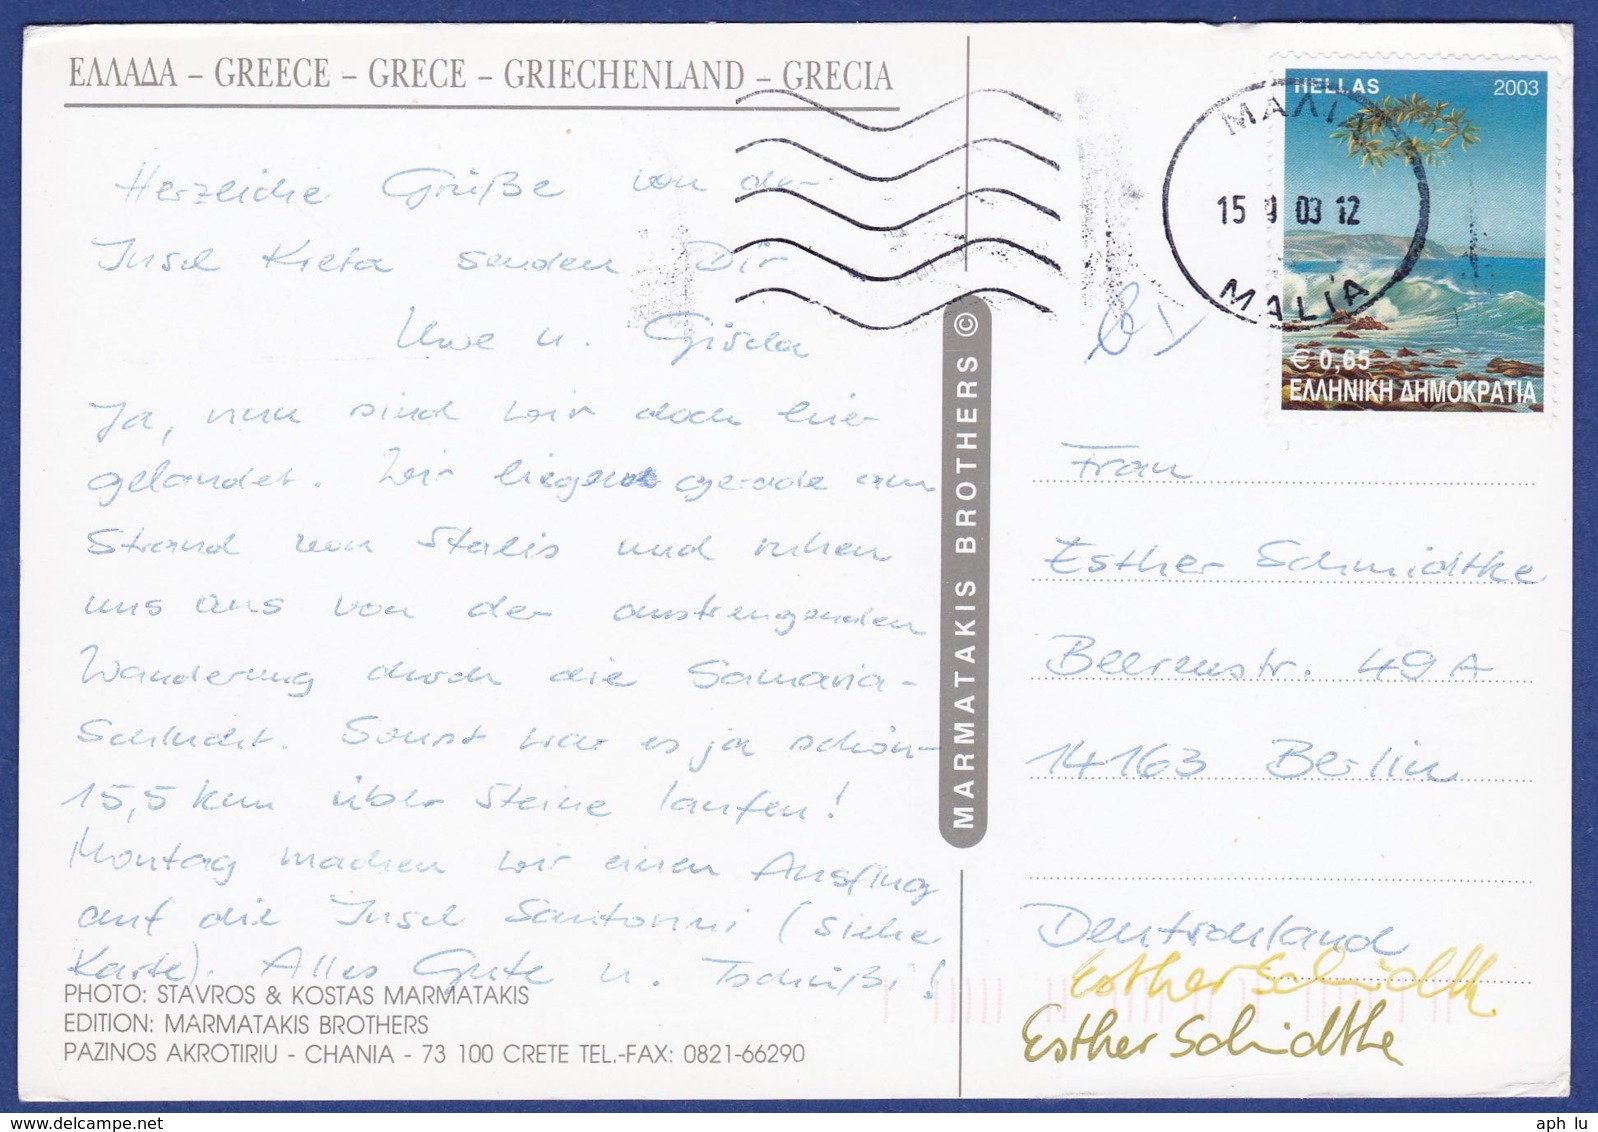 ΕΛΛΑΔΑ – GREECE – GRECE – GRIECHENLAND – GRECIA
HELLAS 2003
ΜΑΛΙΑ
15 9 03 12
MALIA
€ 0,65
ΕΛΛΗΝΙΚΗ ΔΗΜΟΚΡΑΤΙΑ
Herzliche Grüße von der
Insel Kreta senden Dir
Uwe u. Gisela
Ja, nun sind wir doch hier
gelandet. Wir liegen gerade am
Strand von Stalis und ruhen
uns aus von der anstrengenden
Wanderung durch die Samaria-
Schlucht. Sonst war es ja schön
15,5 km über Steine laufen!
Montag machen wir einen Ausflug
auf die Insel Santorini (siehe
Karte). Alles Gute u. Tschüßi!
PHOTO: STAVROS & KOSTAS MARMATAKIS
EDITION: MARMATAKIS BROTHERS
PAZINOS AKROTIRIU - CHANIA - 73 100 CRETE TEL.-FAX: 0821-66290
MARMATAKIS BROTHERS ©
Frau
Esther Schmidtke
Beerenstr. 49A
14163 Berlin
Deutschland
Esther Schmidtke
Esther Schmidtke
aph_lu